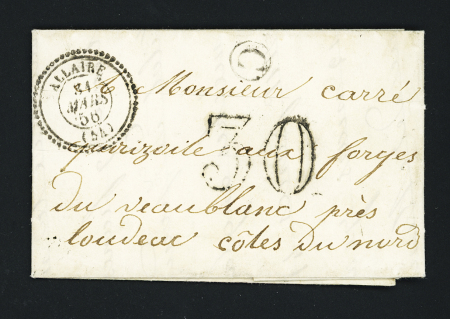 ALLAIRE
MARS
56
C
30
A Monsieur carré
aux forges
du veaublanc près
loudeac côtes du nord